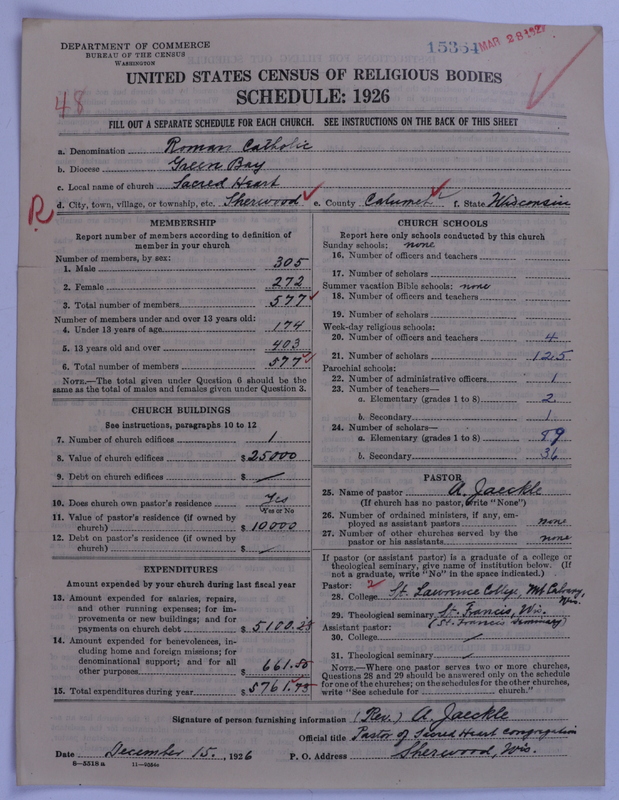 DEPARTMENT OF COMMERCE
BUREAU OF THE CENSUS
WASHINGTON
15364
MAR 28 1927
UNITED STATES CENSUS OF RELIGIOUS BODIES
SCHEDULE: 1926
48
FILL OUT A SEPARATE SCHEDULE FOR EACH CHURCH. SEE INSTRUCTIONS ON THE BACK OF THIS SHEET
a. Denomination Roman Catholic
b. Diocese Green Bay
c. Local name of church Sacred Heart
d. City, town, village, or township, etc. Sherwood e. County Calumet f. State Wisconsin
R
MEMBERSHIP
Report number of members according to definition of
member in your church
Number of members, by sex:
1. Male 305
2. Female 272
3. Total number of members 577
Number of members under and over 13 years old:
4. Under 13 years of age 174
5. 13 years old and over 403
6. Total number of members 577
NOTE.—The total given under Question 6 should be the
same as the total of males and females given under Question 3.
CHURCH BUILDINGS
See instructions, paragraphs 10 to 12
7. Number of church edifices 1
8. Value of church edifices $ 25000
9. Debt on church edifices $
10. Does church own pastor's residence Yes
Yes or No
11. Value of pastor's residence (if owned by
church) $ 10000
12. Debt on pastor's residence (if owned by
church) $
EXPENDITURES
Amount expended by your church during last fiscal year
13. Amount expended for salaries, repairs,
and other running expenses; for im-
provements or new buildings; and for
payments on church debt $ 5100.25
14. Amount expended for benevolences, in-
cluding home and foreign missions; for
denominational support; and for all
other purposes $ 661.50
15. Total expenditures during year $ 5761.75
CHURCH SCHOOLS
Report here only schools conducted by this church
Sunday schools: none
16. Number of officers and teachers
17. Number of scholars
Summer vacation Bible schools: none
18. Number of officers and teachers
19. Number of scholars
Week-day religious schools:
20. Number of officers and teachers 4
21. Number of scholars 125
Parochial schools:
22. Number of administrative officers 1
23. Number of teachers—
a. Elementary (grades 1 to 8) 2
b. Secondary 1
24. Number of scholars—
a. Elementary (grades 1 to 8) 89
b. Secondary 36
PASTOR
25. Name of pastor A. Jaeckle
(If church has no pastor, write "None")
26. Number of ordained ministers, if any, em-
ployed as assistant pastors none
27. Number of other churches served by the
pastor or his assistants none
If pastor (or assistant pastor) is a graduate of a college or
theological seminary, give name of institution below. (If
not a graduate, write "No" in the space indicated.)
Pastor: 2
28. College St. Lawrence College, Mt Calvary, Wis.
29. Theological seminary St. Francis, Wis.
Assistant pastor: (St. Francis Seminary)
30. College
31. Theological seminary
NOTE.—Where one pastor serves two or more churches,
Questions 28 and 29 should be answered only on the schedule
for one of the churches; on the schedules for the other churches,
write "See schedule for church."
Signature of person furnishing information (Rev.) A. Jaeckle
Official title Pastor of Sacred Heart Congregation
Date December 15, 1926 P. O. Address Sherwood, Wis.
8—5518 a 11—9554